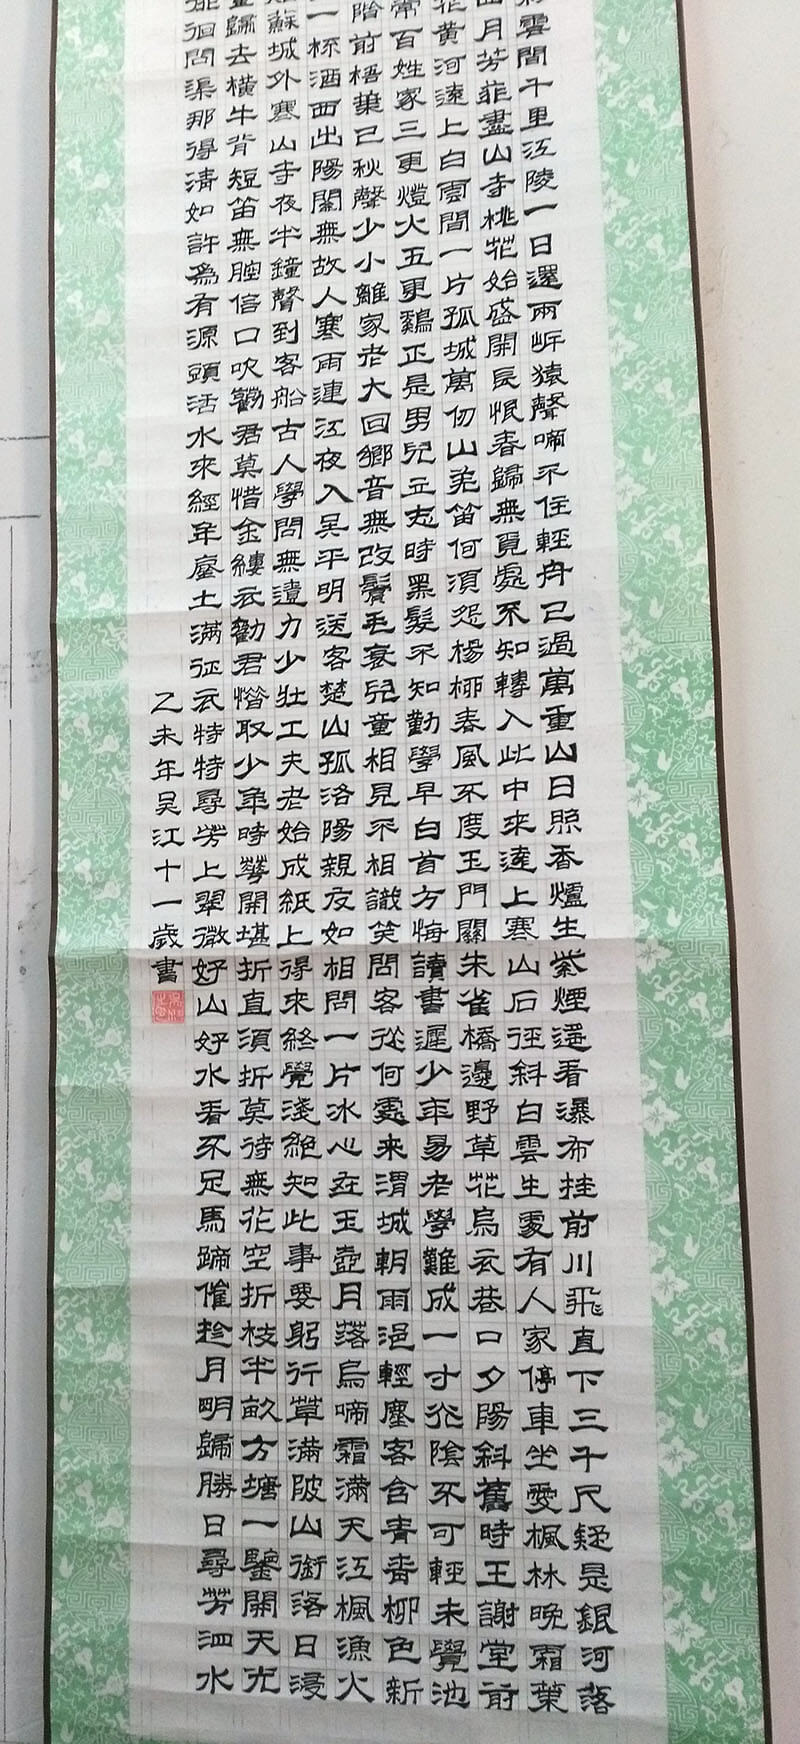 雲間千里江陵一日還兩岸猿聲啼不住輕舟已過萬重山日照香爐生紫煙遥看瀑布挂前川飛直下三千尺疑是銀河落
月芳菲盡山寺桃花始盛開長恨春歸無覓處不知轉入此中來遠上寒山石徑斜白雲生處有人家停車坐愛楓林晚霜葉
花黃河遠上白雲間一片孤城萬仞山羌笛何須怨楊柳春風不度玉門關朱雀橋邊野草花烏衣巷口夕陽斜舊時王謝堂前
常百姓家三更燈火五更鷄正是男兒立志時黑髮不知勤學早白首方悔讀書遲少年易老學難成一寸光陰不可輕未覺池
階前梧葉已秋聲少小離家老大回鄉音無改鬢毛衰兒童相見不相識笑問客從何處来渭城朝雨浥輕塵客舍青青柳色新
一杯酒西出陽關無故人寒雨連江夜入吳平明送客楚山孤洛陽親友如相問一片冰心在玉壺月落烏啼霜滿天江楓漁火
蘇城外寒山寺夜半鐘聲到客船古人學問無遺力少壯工夫老始成紙上得來終覺淺絕知此事要躬行草滿陂山銜落日浸
歸去橫牛背短笛無腔信口吹勸君莫惜金縷衣勸君惜取少年時華開堪折直須折莫待無花空折枝半畝方塘一鑒開天光
徘徊問渠那得清如許為有源頭活水來經年塵土滿征衣特特尋芳上翠微好山好水看不足馬蹄催趁月明歸勝日尋芳泗水
乙未年吳江十一歲書